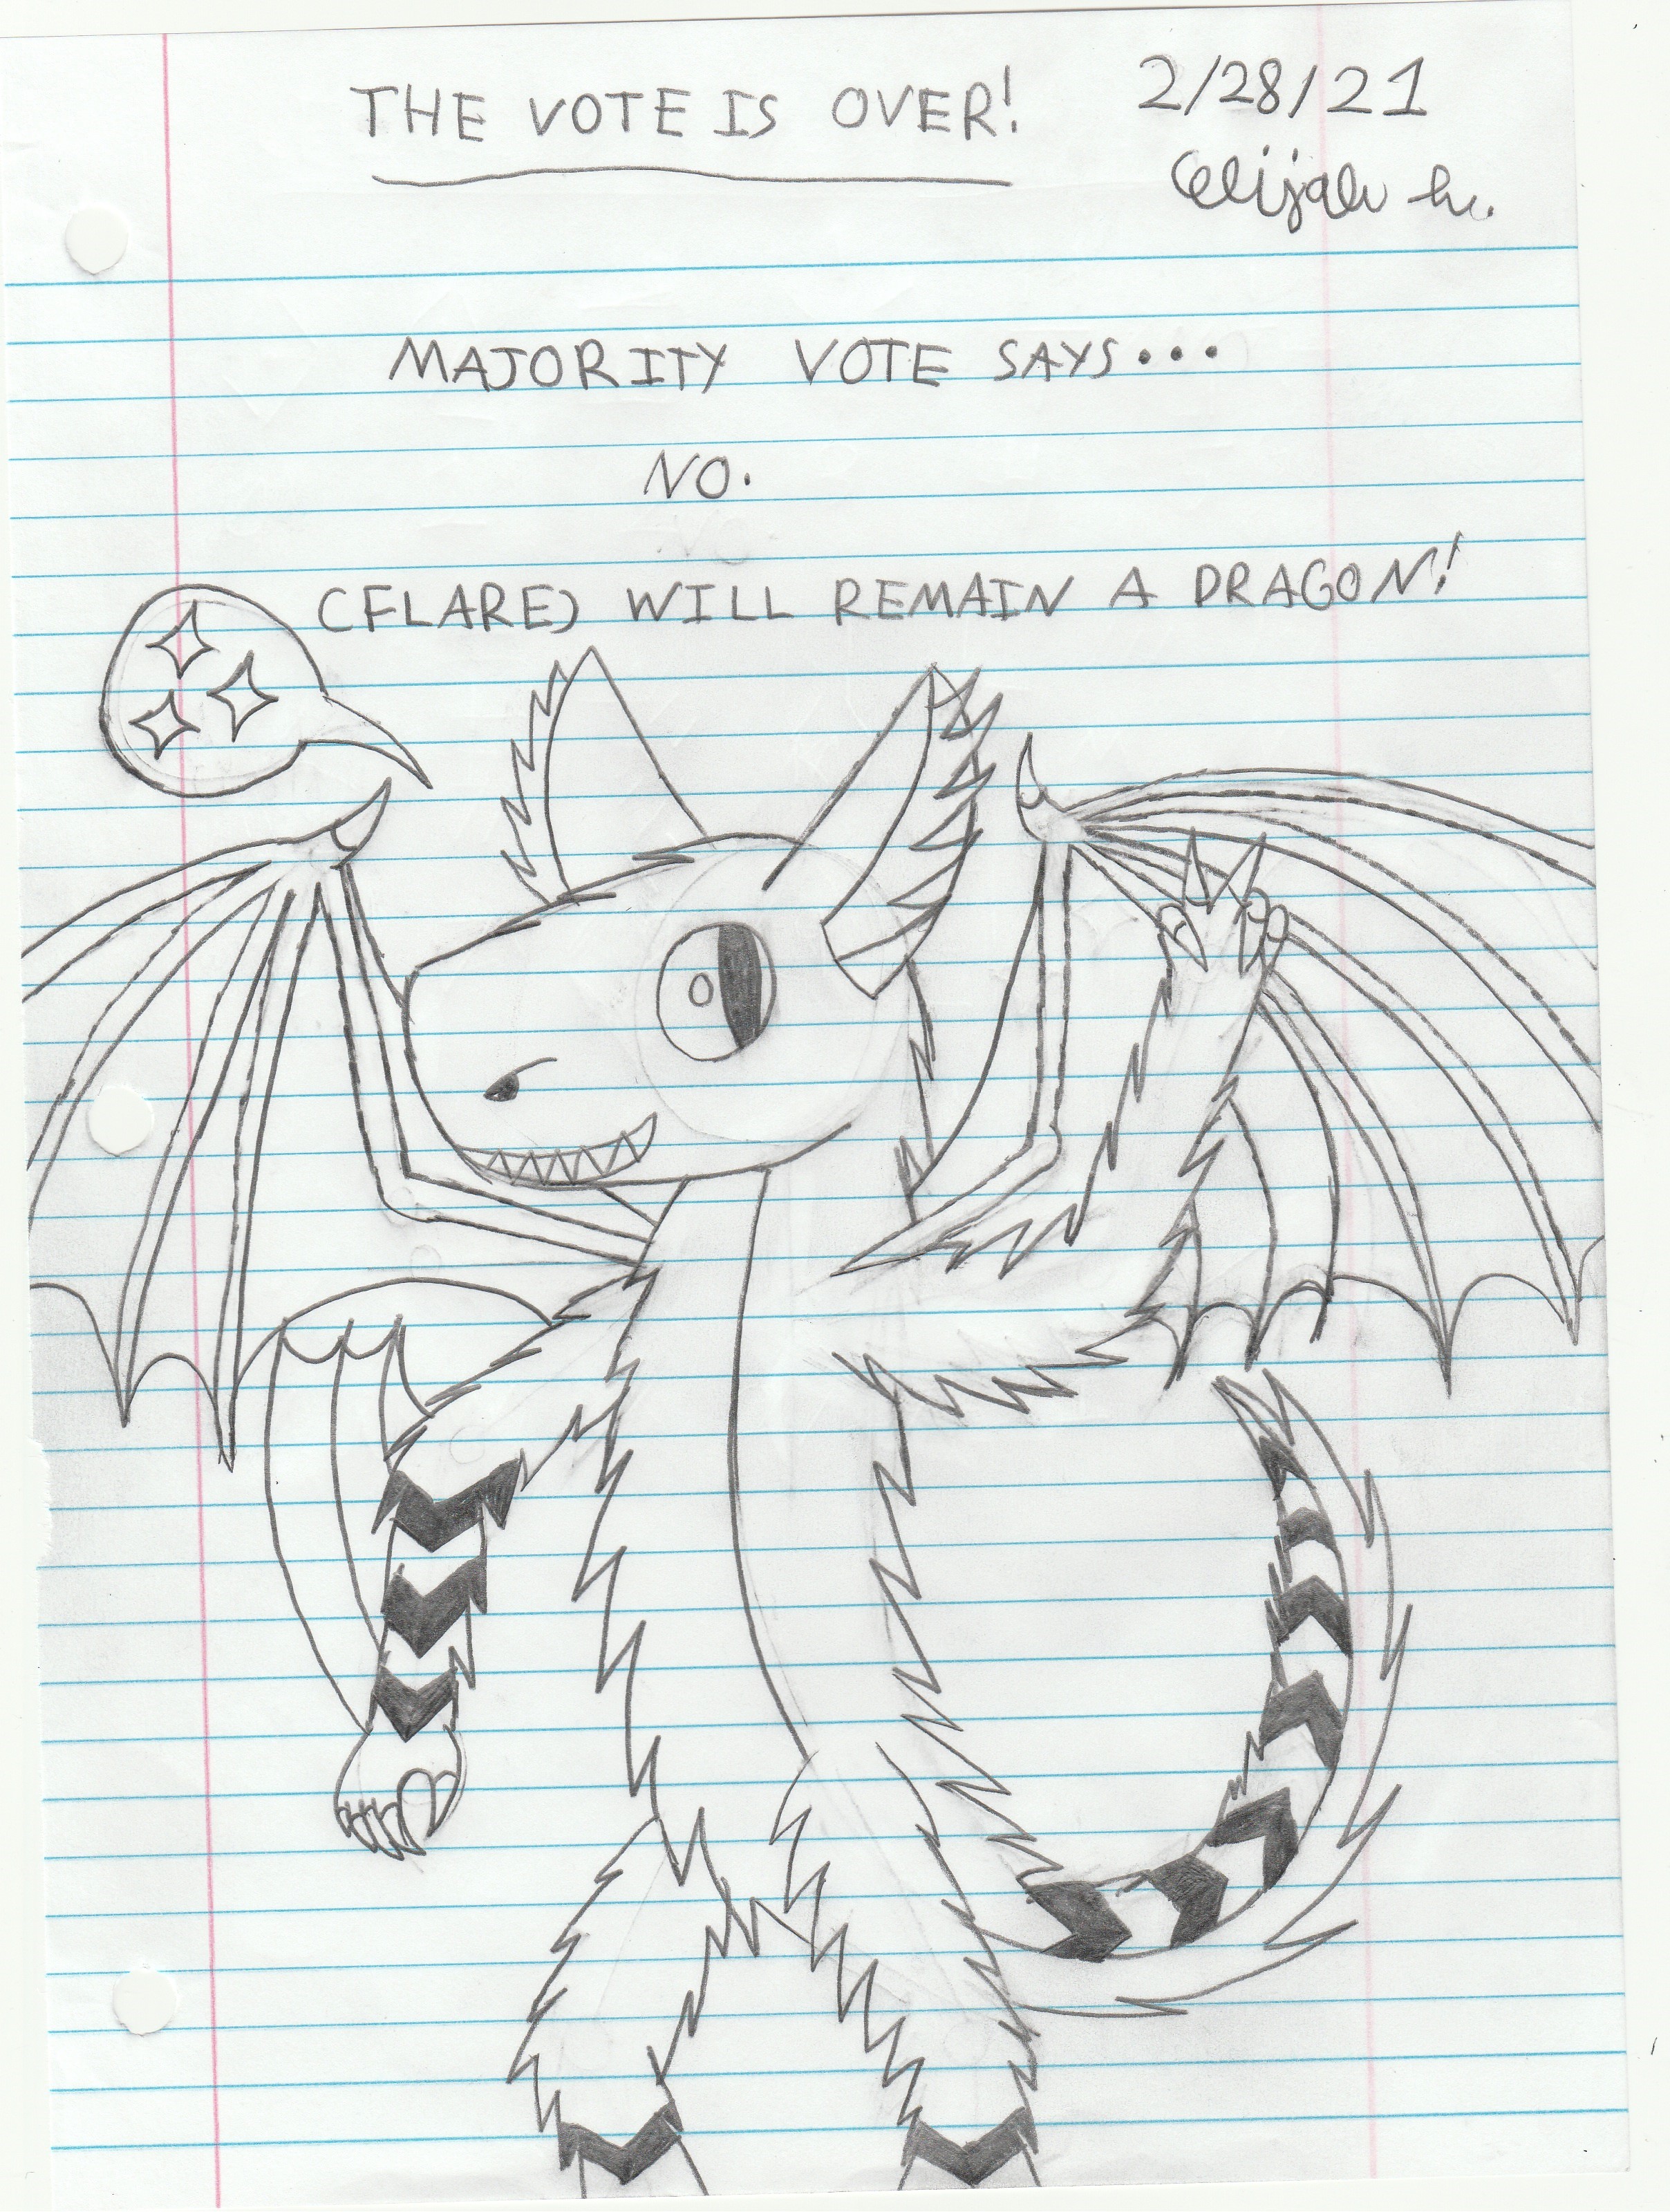 THE VOTE IS OVER! 2/28/21
Elijah h.
MAJORITY VOTE SAYS...
NO.
(FLARE) WILL REMAIN A DRAGON!